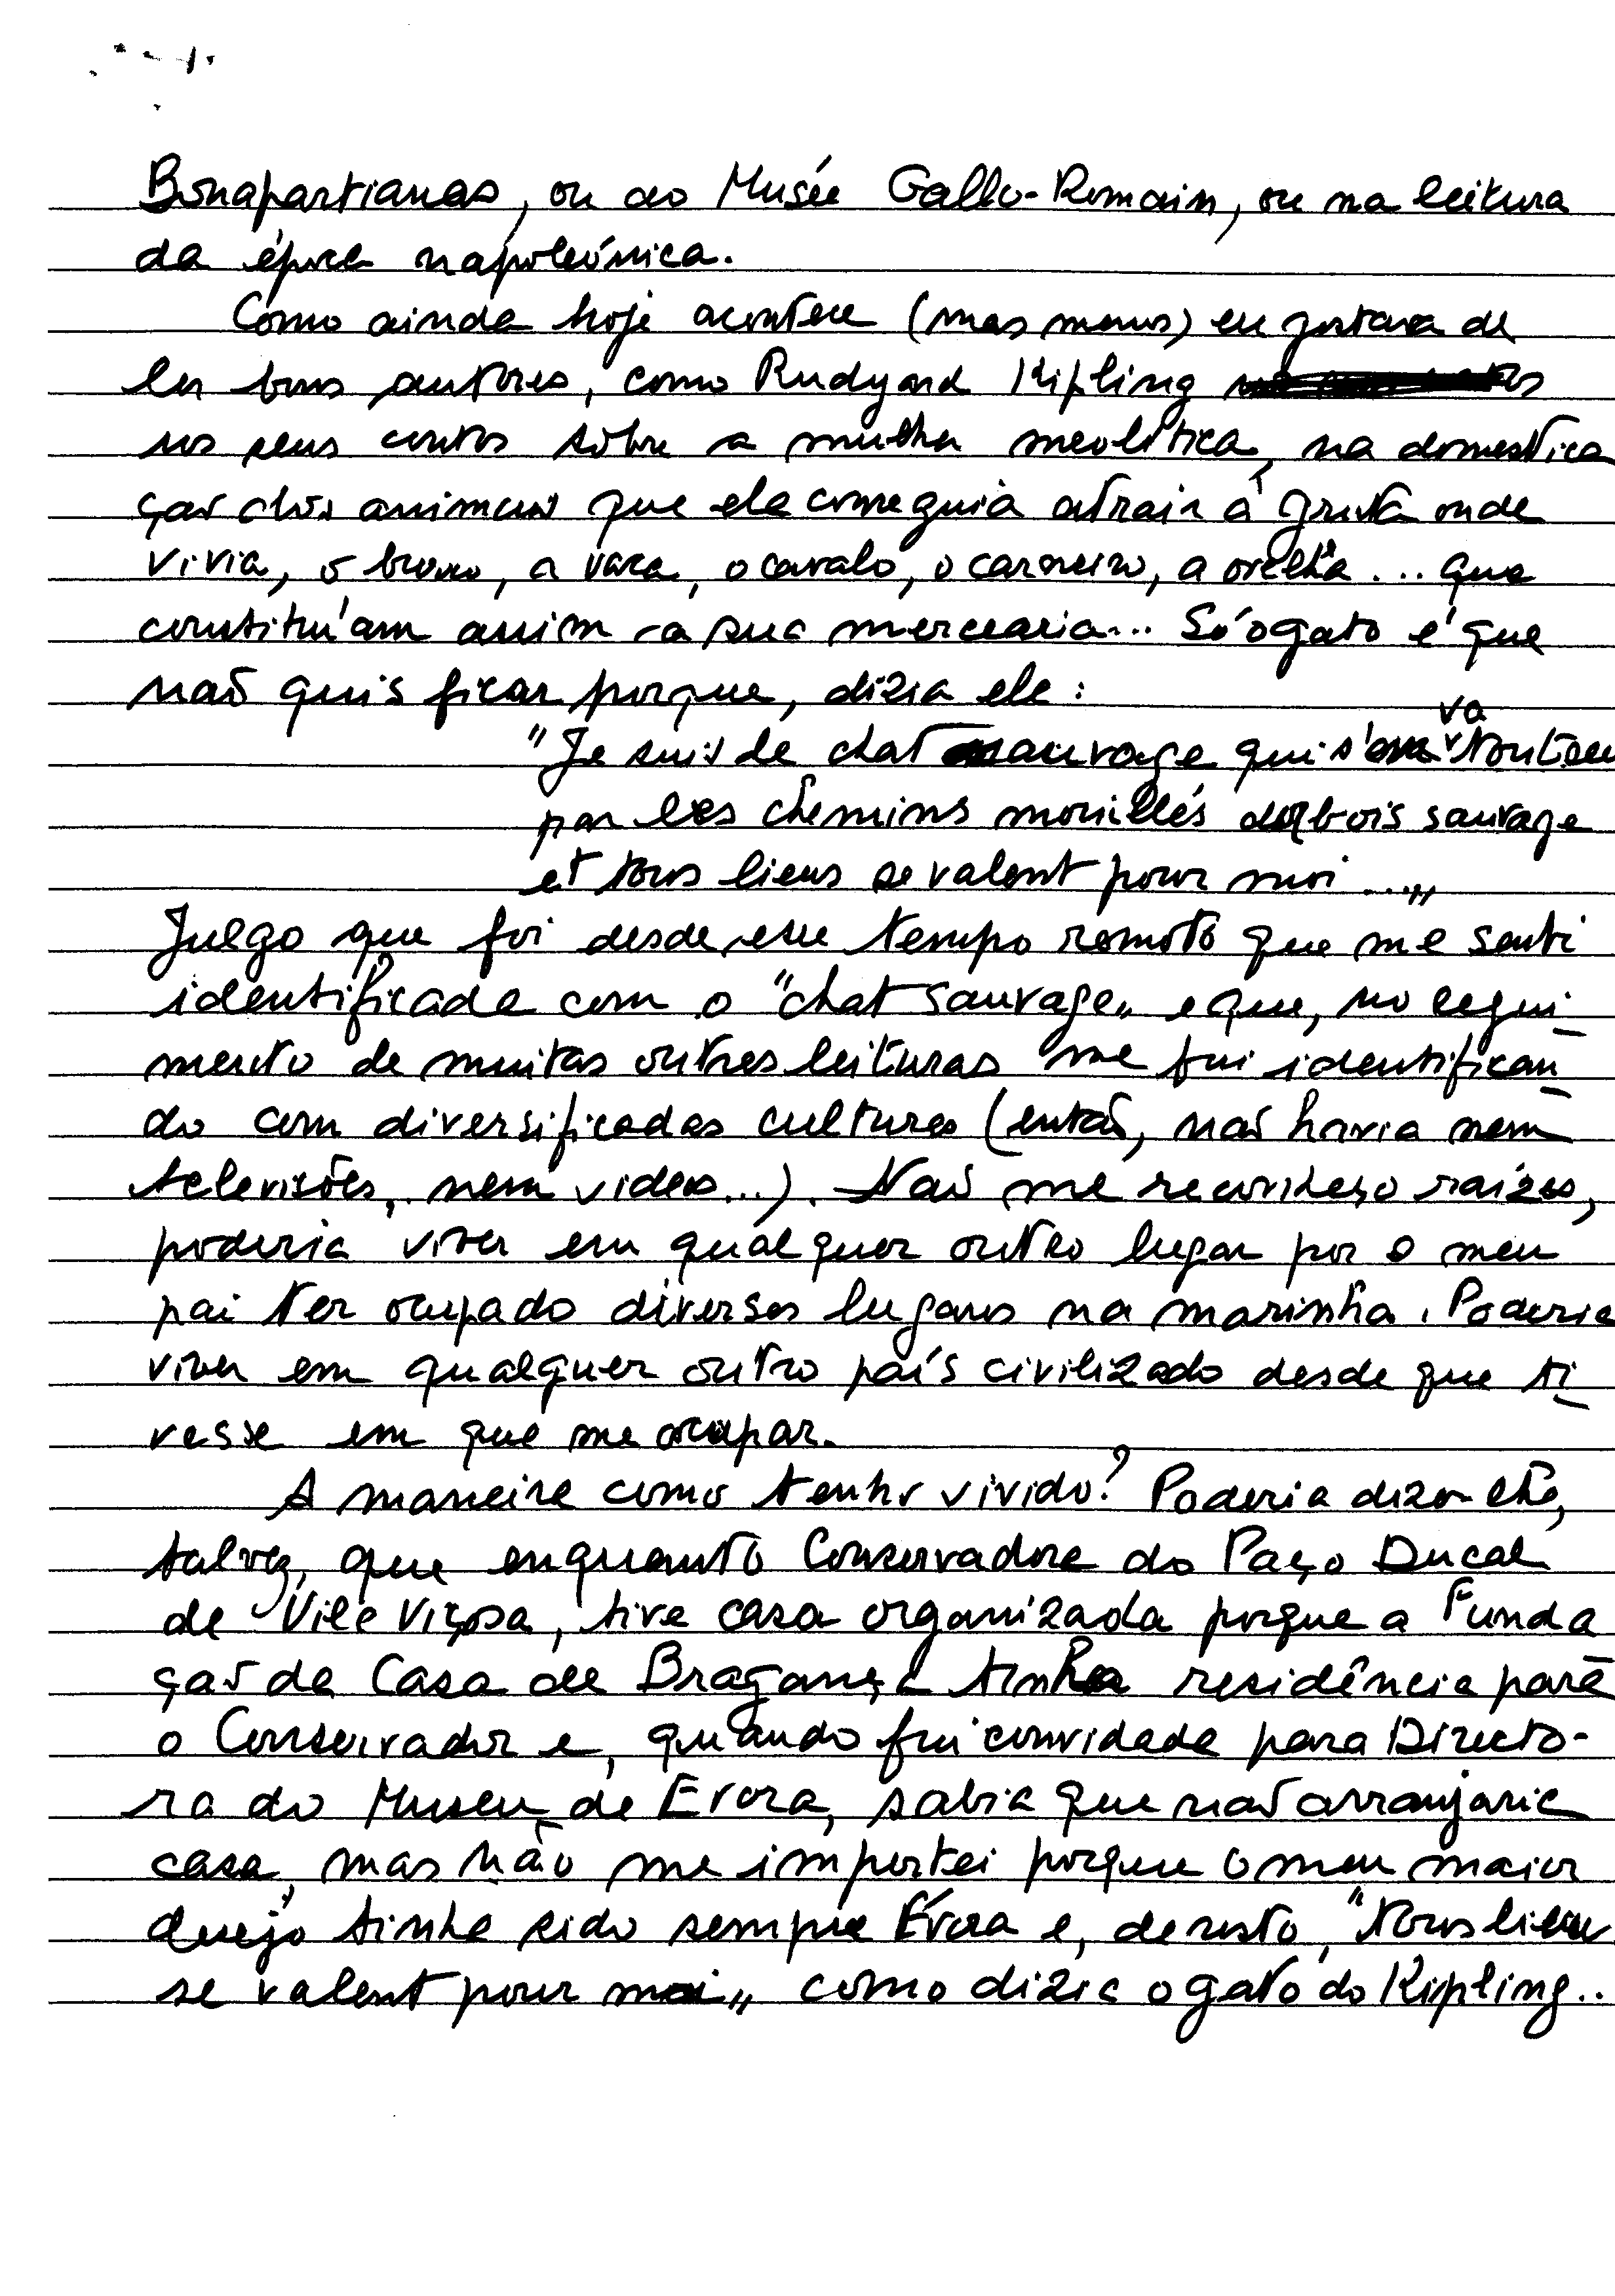 Bonapartianas, ou ao Musée Gallo-Romain, ou na leitura
da época napoleónica.
Como ainda hoje acontece (mas menos) eu gostava de
ler bons autores, como Rudyard Kipling
nos seus contos sôbre a mulher neolítica, na domestica
ção dos animais que ela conseguia atrair à gruta onde
vivia, o burro, a vaca, o cavalo, o carneiro, a ovelha ... que
constituíam assim a sua mercearia... Só o gato é que
não quis ficar porque, dizia ele:
"Je suis le chat sauvage qui s'en va tout seul
par les chemins mouillés du bois sauvage
et tous lieus se valent pour moi ...„
Julgo que foi desde esse tempo remoto que me senti
identificada com o "chat sauvage„ e que, no segui-
mento de muitas outras leituras me fui identifican
do com diversificadas culturas (então, não havia nem
televisões, nem videos...). Não me reconheço raízes,
poderia viver em qualquer outro lugar por o meu
pai ter ocupado diversos lugares na marinha. Poderia
viver em qualquer outro país civilizado desde que ti
vesse em que me ocupar.
A maneira como tenho vivido? Poderia dizer-lhe,
talvez, que enquanto Conservadora do Paço Ducal
de Vila Viçosa, tive casa organizada porque a Funda
ção da Casa de Bragança tinha residência para
o Conservador e, quando fui convidada para Directo-
ra do Museu de Évora, sabia que não arranjaria
casa, mas não me importei porque o meu maior
desejo tinha sido sempre Évora e, de resto, "tous lieus
se valent pour moi„ como dizia o gato do Kipling..